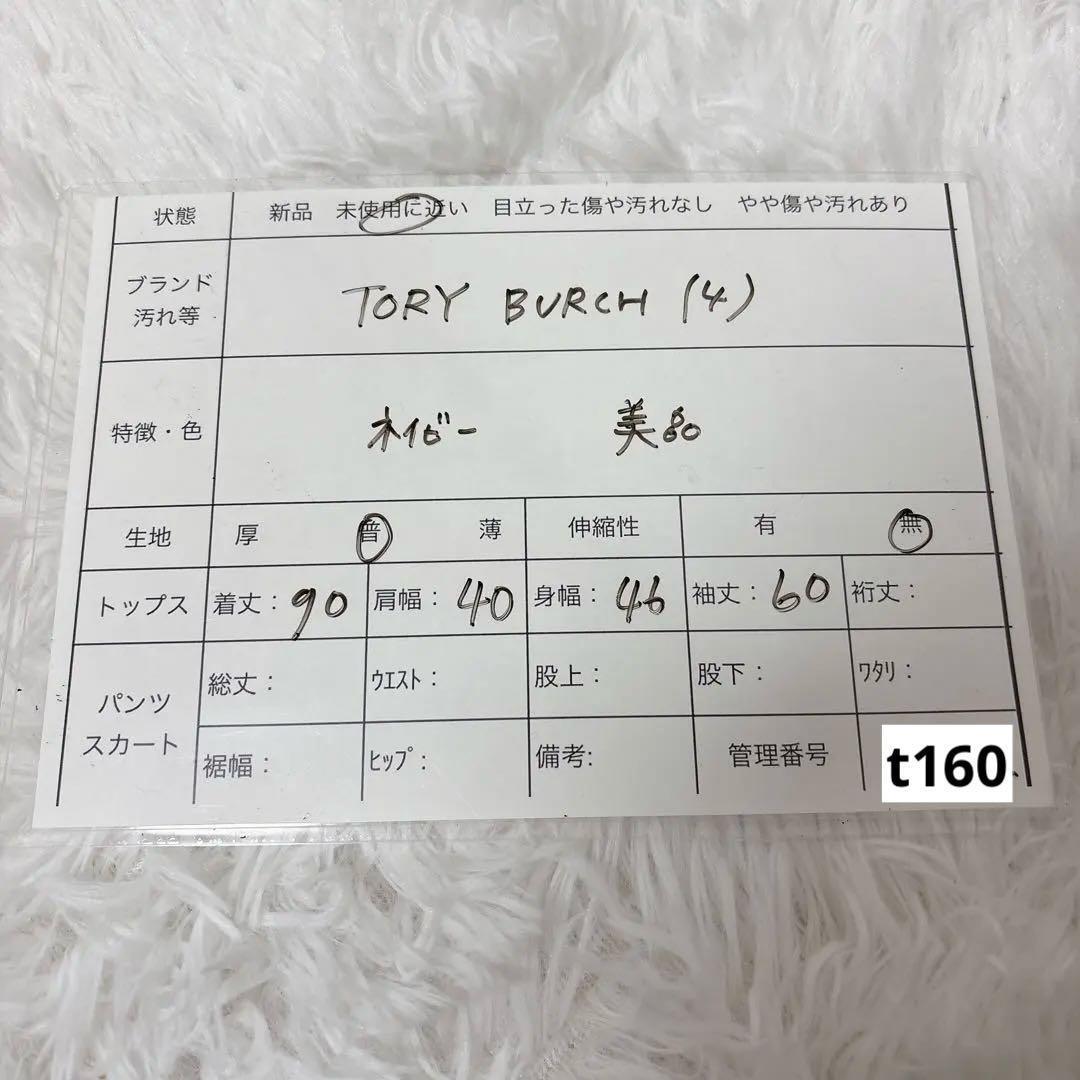 状態 新品 未使用に近い 目立った傷や汚れなし やや傷や汚れあり
ブランド
汚れ等
TORY BURCH (4)
特徴・色 ネイビー 美品
生地 厚 普 薄 伸縮性 有 無
トップス 着丈：90 肩幅：40 身幅：46 袖丈：60 裄丈：
パンツ
スカート
総丈： ｳｴｽﾄ： 股上： 股下： ﾜﾀﾘ：
裾幅： ﾋｯﾌﾟ： 備考: 管理番号 t160